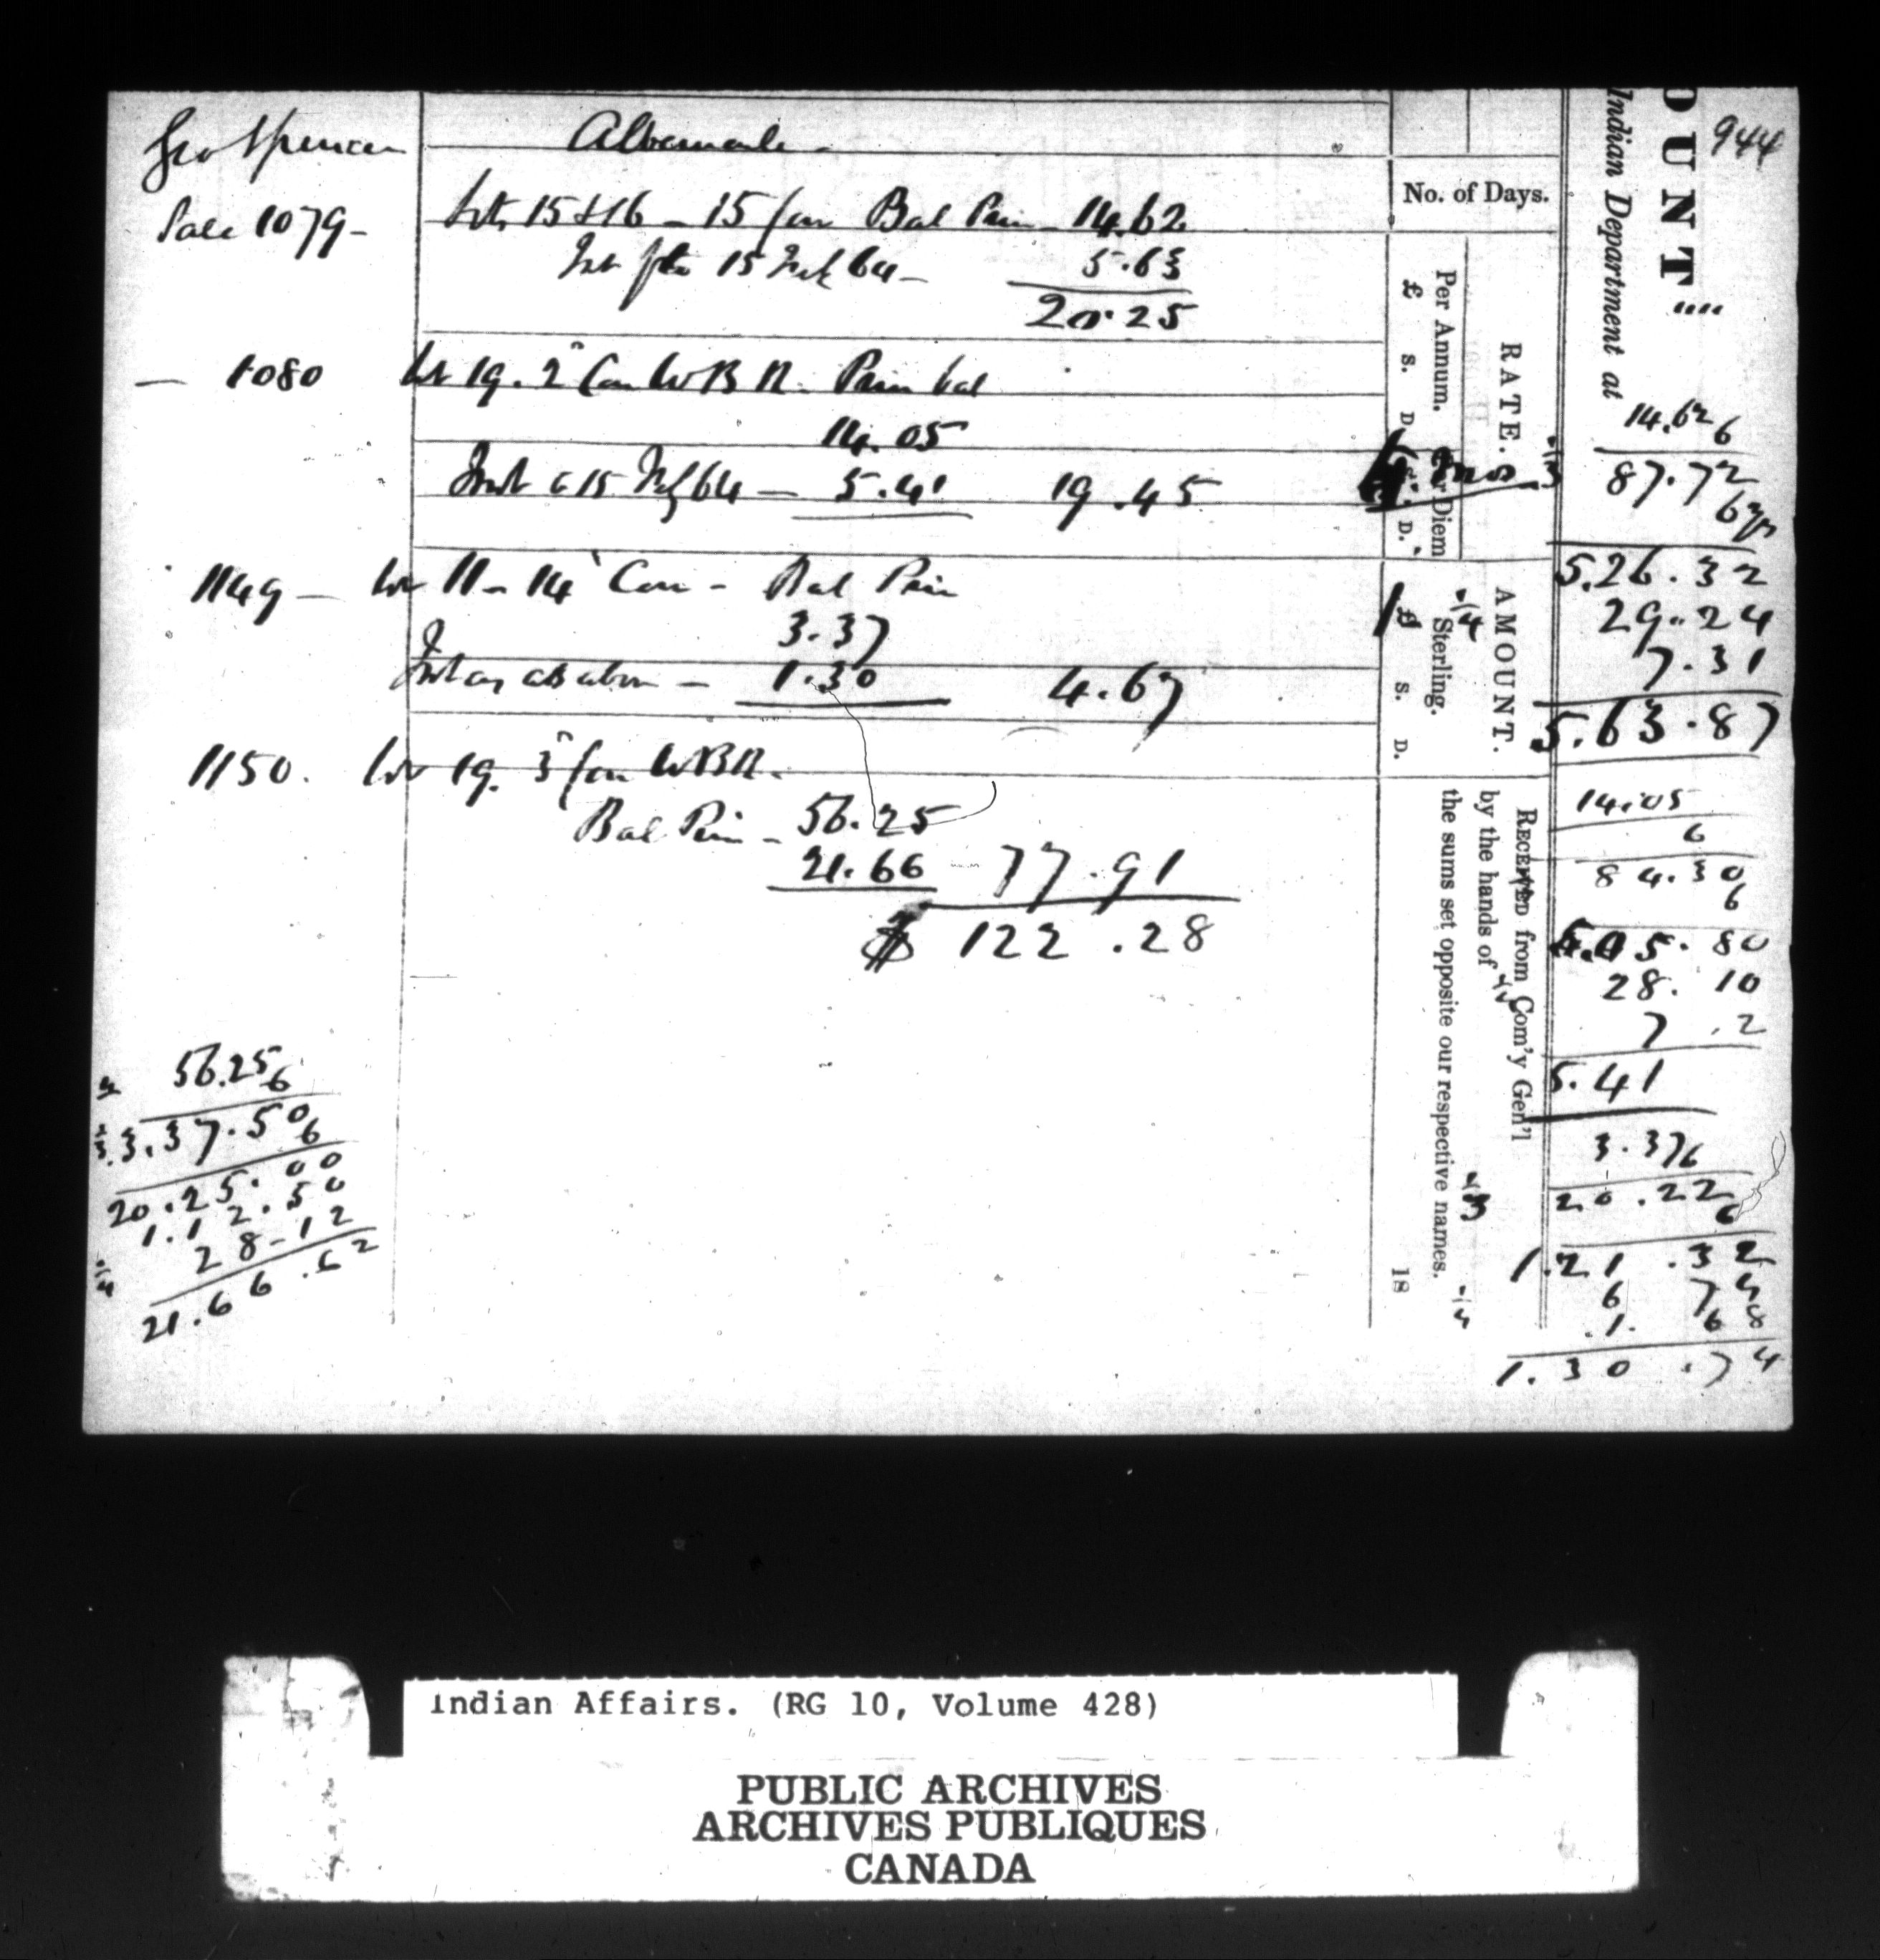 944
Geo Spencer Albemarle
Sale 1079 - Lots 15 & 16 - 15 Con Bal Prin - 14.62
Int to 15 64 - 5.63
20.25
- 1080 Lot 19. 2n Con W B R. Prin bal
14.05
Int to 15 64 - 5.41 19.45
1149 - Lot 11 - 14 Con - Bal Prin
3.37
Int as above - 1.30 4.67
1150. Lot 19. 3n Con W B R.
Bal Prin - 56.25
21.66 77.91
$ 122.28
56.25
6
3.37.50
6
20.25.00
1.12.50
28-12
21.66.62
OUNT"
Indian Department at
No. of Days.
RATE.
Per Annum.
£ S. D.
Diem
D.
AMOUNT.
Sterling.
£ S. D.
RECEIVED from Com'y Gen'l
by the hands of
the sums set opposite our respective names.
18
14.62
6
87.72
6
5.26.32
29.24
7.31
5.63.87
14.05
6
84.30
6
5.05.80
28.10
7.2
5.41
3.37
6
20.22
6
1.21.32
6 74
1. 68
1.30.74
Indian Affairs. (RG 10, Volume 428)
PUBLIC ARCHIVES
ARCHIVES PUBLIQUES
CANADA